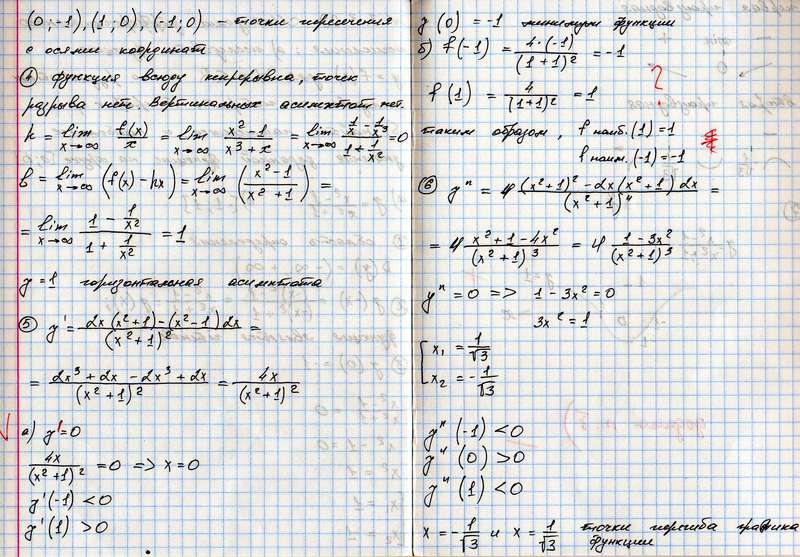 (0; -1), (1; 0), (-1; 0) – точки пересечения
с осями координат
④ функция всюду непрерывна, точек
разрыва нет, вертикальных асимптот нет.
k = lim x→∞ f(x)/x = lim x→∞ (x²-1)/(x³+x) = lim x→∞ (1/x - 1/x³)/(1 + 1/x²) = 0
b = lim x→∞ (f(x) - kx) = lim x→∞ ((x²-1)/(x²+1)) =
= lim x→∞ (1 - 1/x²)/(1 + 1/x²) = 1
y = 1 горизонтальная асимптота
⑤ y' = (2x(x²+1) - (x²-1)2x)/(x²+1)² =
= (2x³ + 2x - 2x³ + 2x)/(x²+1)² = 4x/(x²+1)²
а) y' = 0
4x/(x²+1)² = 0 => x = 0
y'(-1) < 0
y'(1) > 0
y(0) = -1 минимум функции
б) f(-1) = 4·(-1)/(1+1)² = -1
?
f(1) = 4/(1+1)² = 1
таким образом, f наиб.(1) = 1
f наим.(-1) = -1
⑥ y" = 4 ((x²+1)² - 2x(x²+1)2x)/(x²+1)⁴ =
= 4 (x²+1-4x²)/(x²+1)³ = 4 (1-3x²)/(x²+1)³
y" = 0 => 1 - 3x² = 0
3x² = 1
x₁ = 1/√3
x₂ = -1/√3
y"(-1) < 0
y"(0) > 0
y"(1) < 0
x = -1/√3 и x = 1/√3 точки перегиба графика
функции